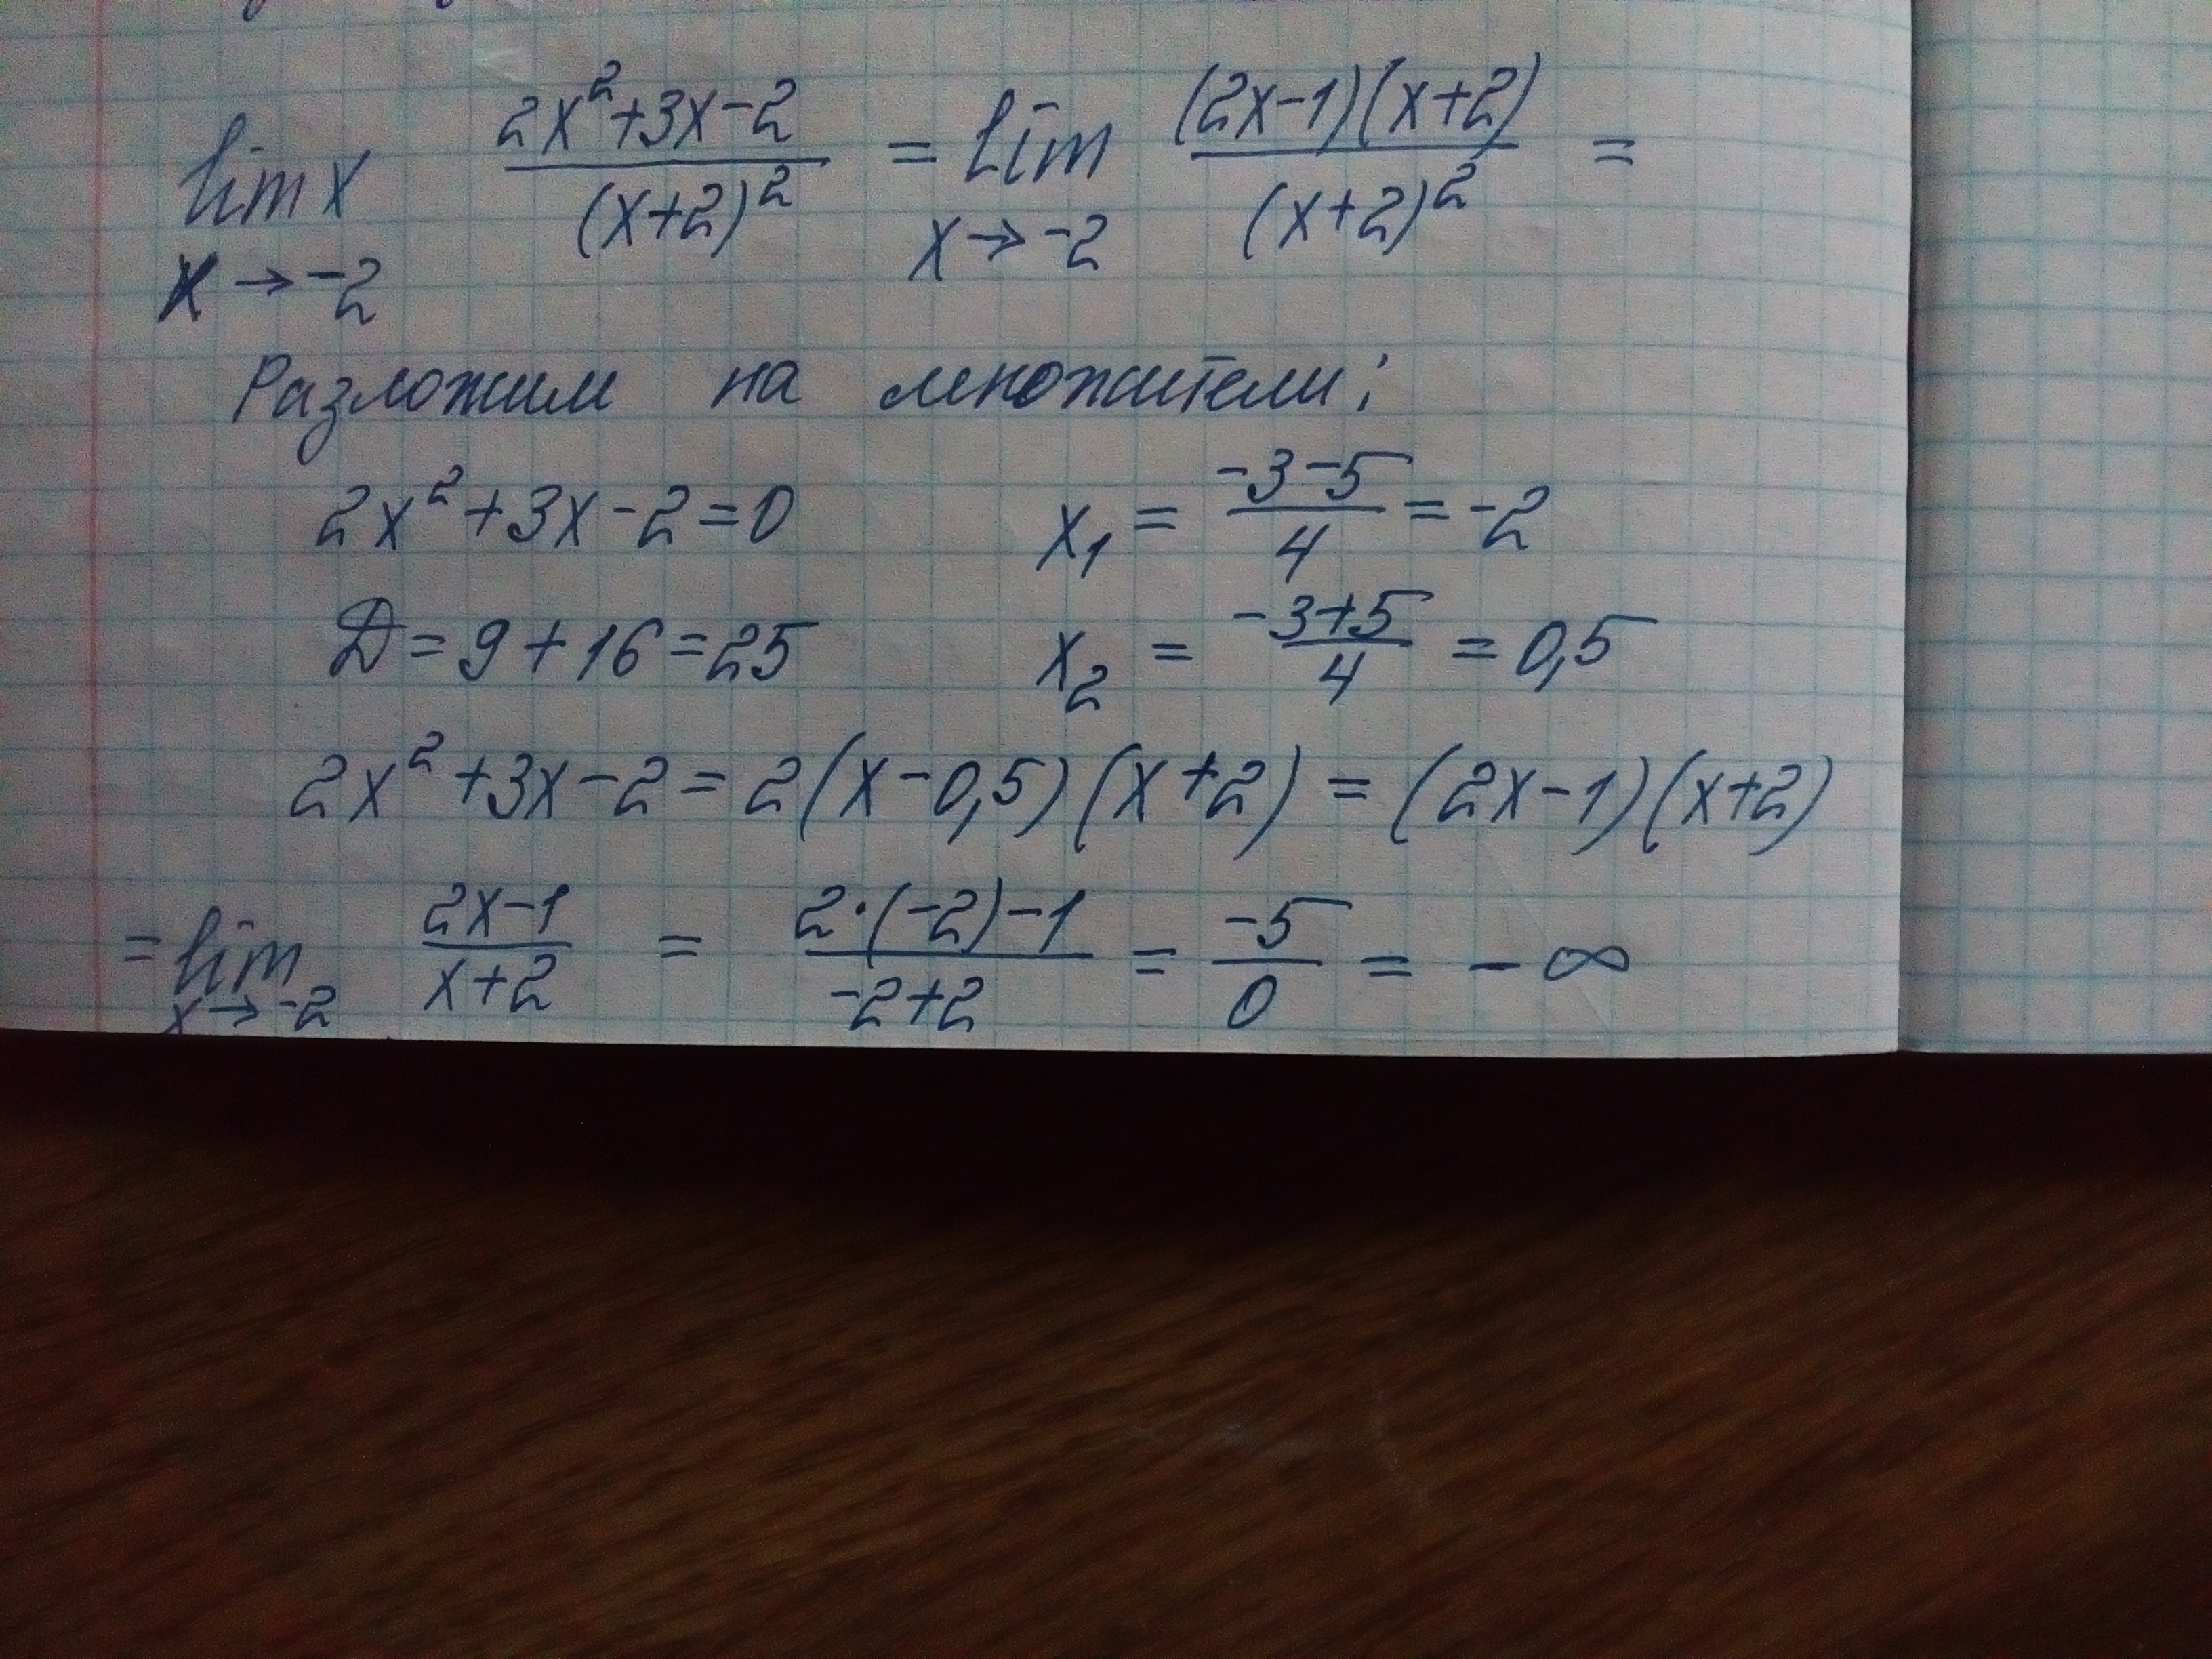 lim x 2x²+3x-2 / (x+2)² = lim (2x-1)(x+2) / (x+2)² =
x→-2 x→-2
Разложим на множители:
2x²+3x-2=0 x₁ = -3-5 / 4 = -2
D=9+16=25 x₂ = -3+5 / 4 = 0,5
2x²+3x-2=2(x-0,5)(x+2)=(2x-1)(x+2)
=lim 2x-1 / x+2 = 2·(-2)-1 / -2+2 = -5 / 0 = -∞
x→-2